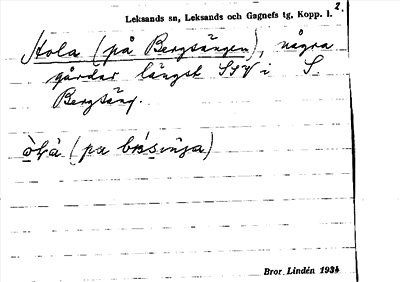 2.
Leksands sn, Leksands och Gagnefs tg, Kopp. l.
(på Bergsängen), några
gårdar längst SSV i S.
Bergsäng.
Bror Lindén 1934